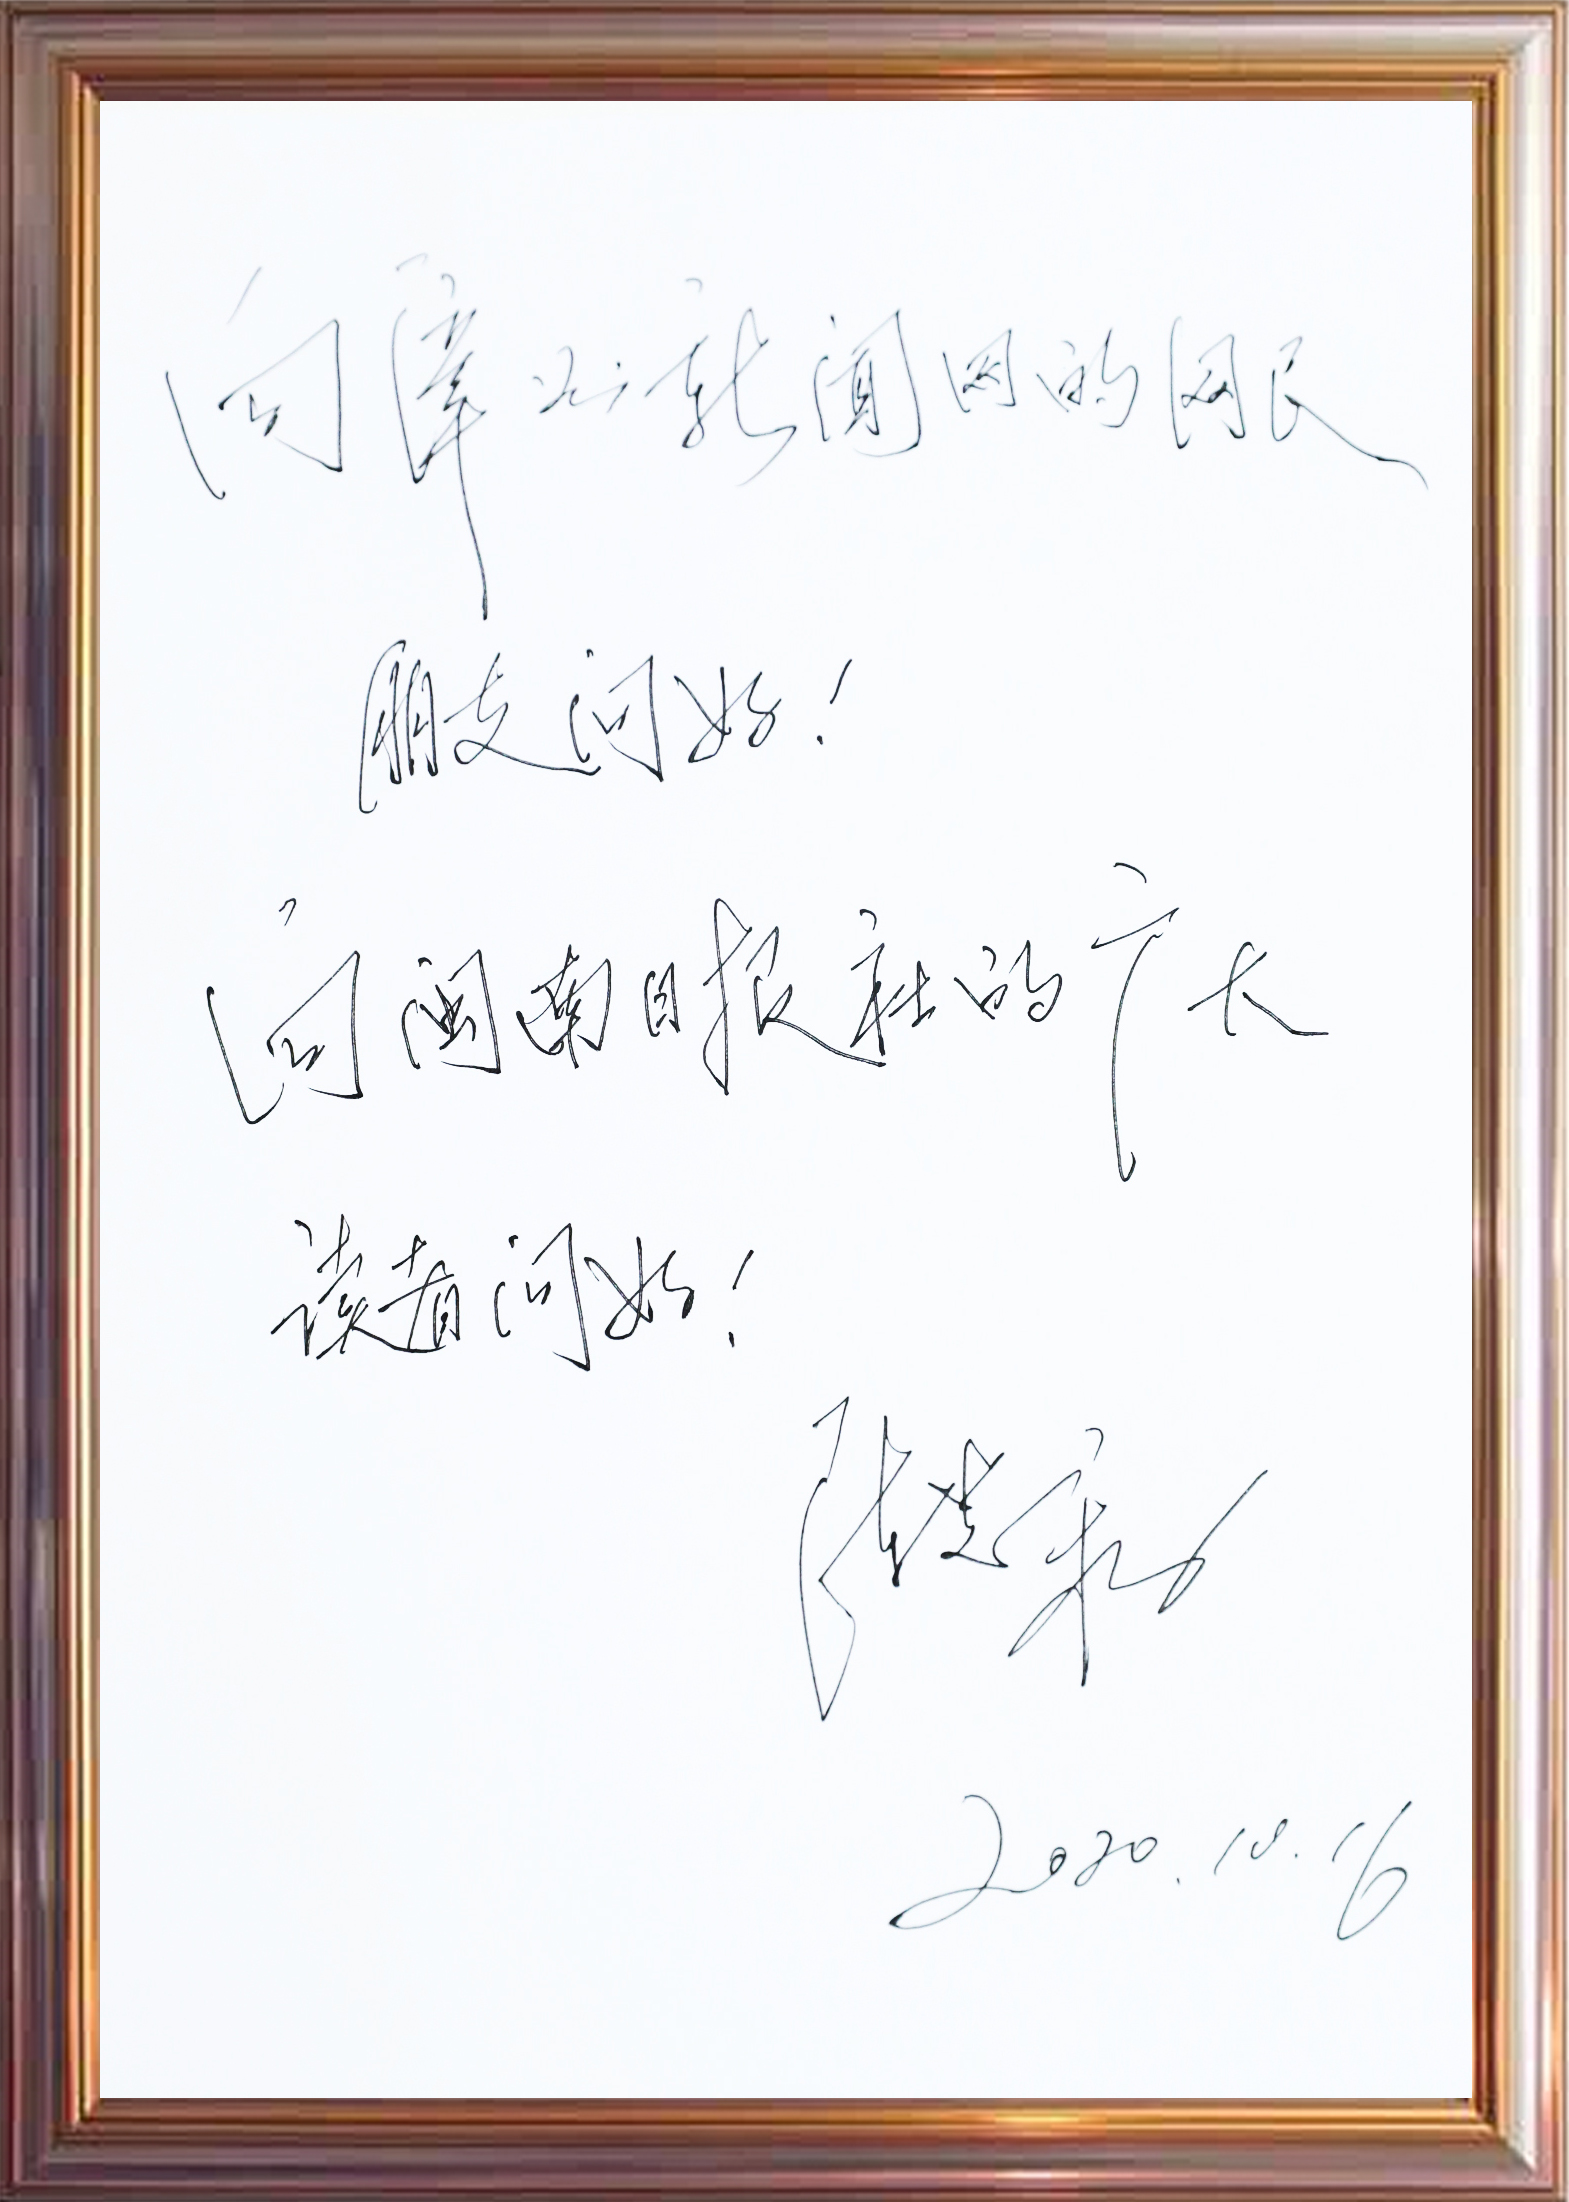 向漳州新闻网的网民
朋友问好!
向闽南日报社的广大
读者问好!
2020.10.16